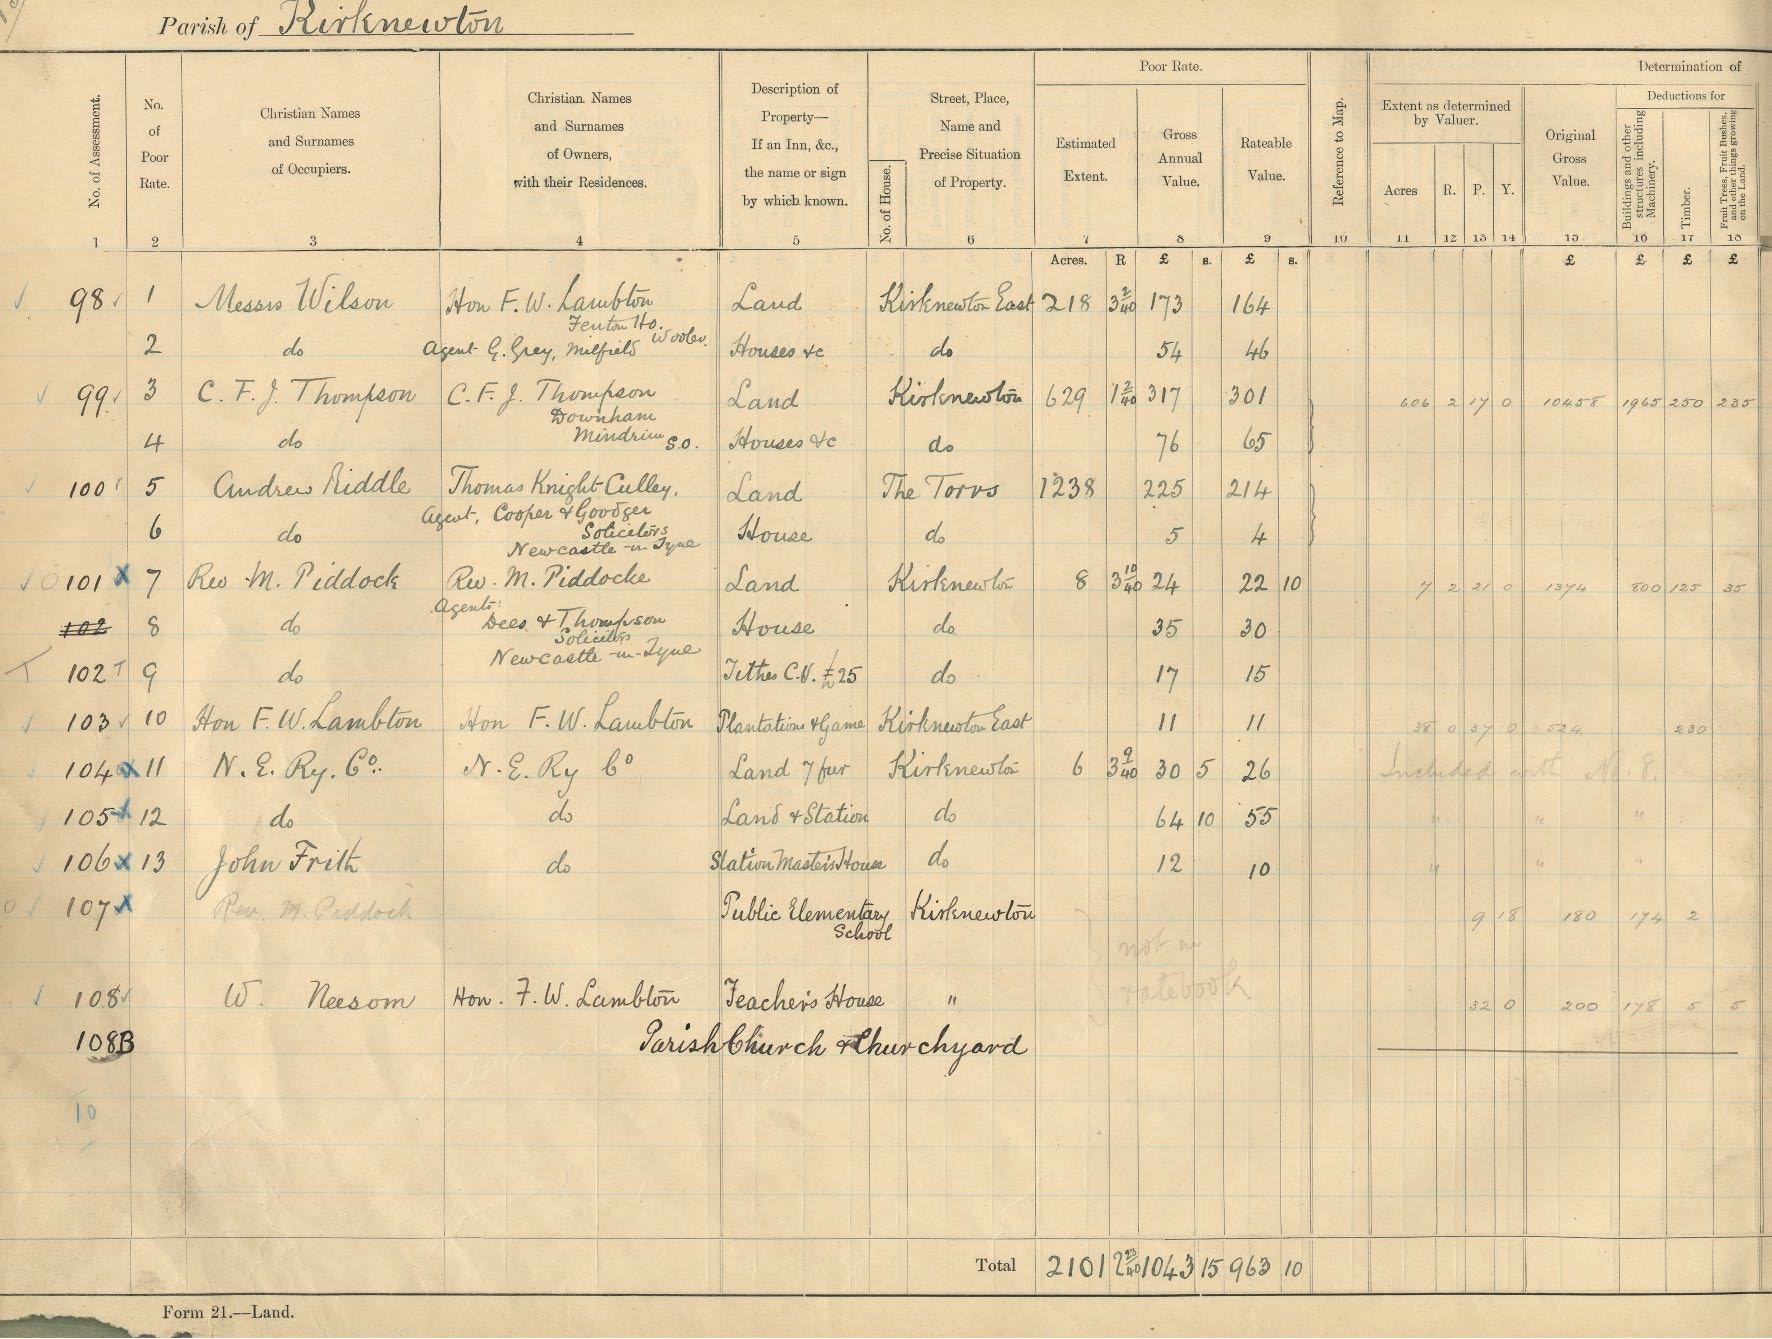 Parish of Kirknewton
Poor Rate.
Determination of
No. of Assessment.
No. of Poor Rate.
Christian Names and Surnames of Occupiers.
Christian Names and Surnames of Owners, with their Residences.
Description of Property— If an Inn, &c., the name or sign by which known.
No. of House.
Street, Place, Name and Precise Situation of Property.
Estimated Extent.
Gross Annual Value.
Rateable Value.
Reference to Map.
Extent as determined by Valuer.
Acres R. P. Y.
Original Gross Value.
Deductions for
Buildings and other structures including Machinery.
Timber.
Fruit Trees, Fruit Bushes, and other things growing on the Land.
1 2 3 4 5 6 7 8 9 10 11 12 13 14 15 16 17 18
Acres. R £ s. £ s. £ £ £ £
98 1 Messrs Wilson Hon F. W. Lambton Land Kirknewton East 218 3 2/40 173 164
Fenton Ho. Wooler.
2 do Agent G. Grey, Milfield Houses &c do 54 46
99 3 C. F. J. Thompson C. F. J. Thompson Land Kirknewton 629 1 2/40 317 301 606 2 17 0 10458 1965 250 235
Downham
Mindrum S.O.
4 do Houses &c do 76 65
100 5 Andrew Riddle Thomas Knight Culley, Land The Torrs 1238 225 214
Agent, Cooper & Goodger
Solicitors
6 do House do 5 4
Newcastle-on-Tyne
101 x 7 Rev M. Piddock Rev. M. Piddocke Land Kirknewton 8 3 10/40 24 22 10 7 2 21 0 1374 800 125 35
Agents:
102 8 do Dees & Thompson House do 35 30
Solicitors
Newcastle-on-Tyne
102 T 9 do Tithes C.V. £25 do 17 15
103 10 Hon F. W. Lambton Hon F. W. Lambton Plantations & Game Kirknewton East 11 11 38 0 37 0 524 230
104 x 11 N. E. Ry. Co. N. E. Ry Co Land 7 fur Kirknewton 6 3 9/40 30 5 26 Included with No. 8.
105 x 12 do do Land & Station do 64 10 55 " " "
106 x 13 John Frith do Station Master's House do 12 10 " " "
107 x Rev. M. Piddock Public Elementary School Kirknewton 9 18 180 174 2
not in
ratebook
108 W. Neesom Hon. F. W. Lambton Teacher's House " 32 0 200 178 5 5
108B Parish Church & Churchyard
10
Total 2101 2 23/40 1043 15 963 10
Form 21.—Land.